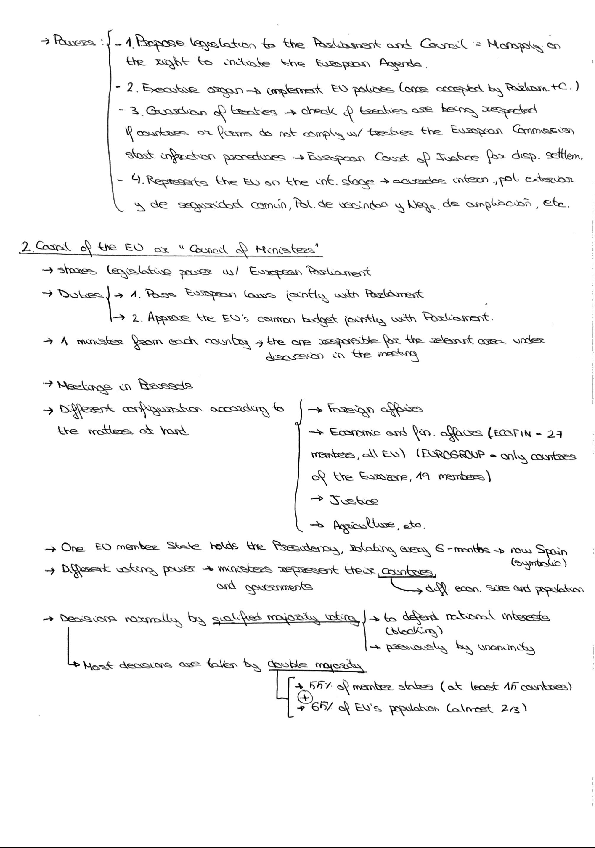 → Powers: - 1. Propose legislation to the Parliament and Council = Monopoly on
the right to initiate the European Agenda.
- 2. Executive organ → implement EU policies (once accepted by Parliam + C.)
- 3. Guardian of treaties → check if treaties are being respected
If countries or firms do not comply w/ treaties the European Commission
start infraction procedures → European Court of Justice for disp. settlem.
- 4. Represents the EU on the int. stage → acuerdos intern., pol. exterior
y de seguridad común, Pol. de vecindad y Nego. de ampliación, etc.
2. Council of the EU or "Council of Ministers"
→ shares legislative power w/ European Parliament
→ Duties → 1. Pass European laws jointly with Parliament
→ 2. Approve the EU's common budget jointly with Parliament.
→ 1 minister from each country → the one responsible for the relevant area under
discussion in the meeting
→ Meetings in Brussels
→ Different configuration according to
the matters at hand.
→ Foreign affairs
→ Economic and fin. affairs (ECOFIN - 27
members, all EU) (EUROGROUP - only countries
of the Eurozone, 19 members)
→ Justice
→ Agriculture, etc.
→ One EU member State holds the Presidency, rotating every 6-months → now Spain
(symbolic)
→ Different voting power → ministers represent their countries
and governments
→ diff econ. size and population
→ Decisions normally by qualified majority voting → to defend national interests
(blocking)
→ previously by unanimity
→ Most decisions are taken by double majority
→ 55% of member states (at least 15 countries)
+
→ 65% of EU's population (almost 2/3)